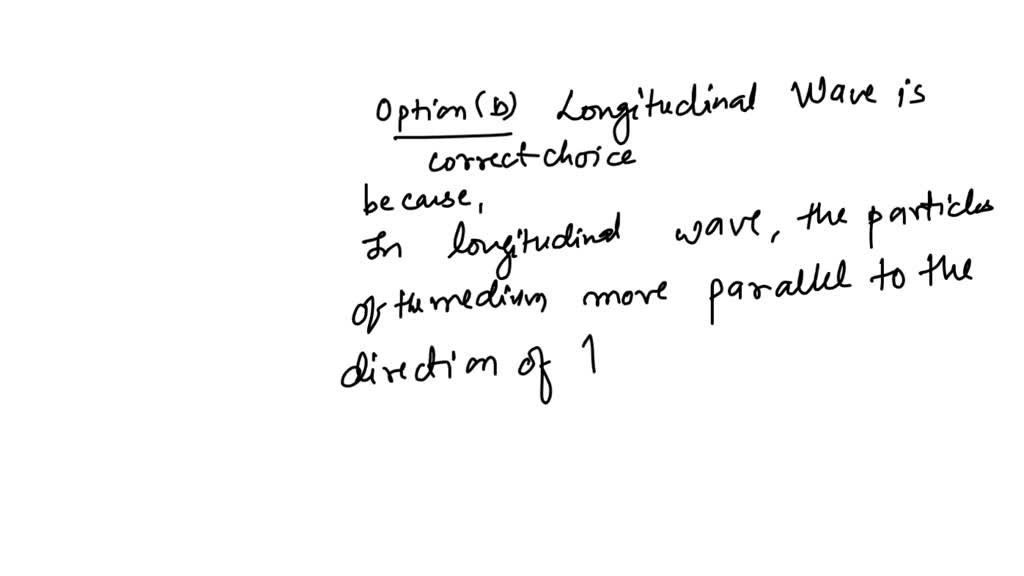 Option (b) Longitudinal Wave is
correct choice
because,
In longitudinal wave, the particles
of the medium move parallel to the
direction of